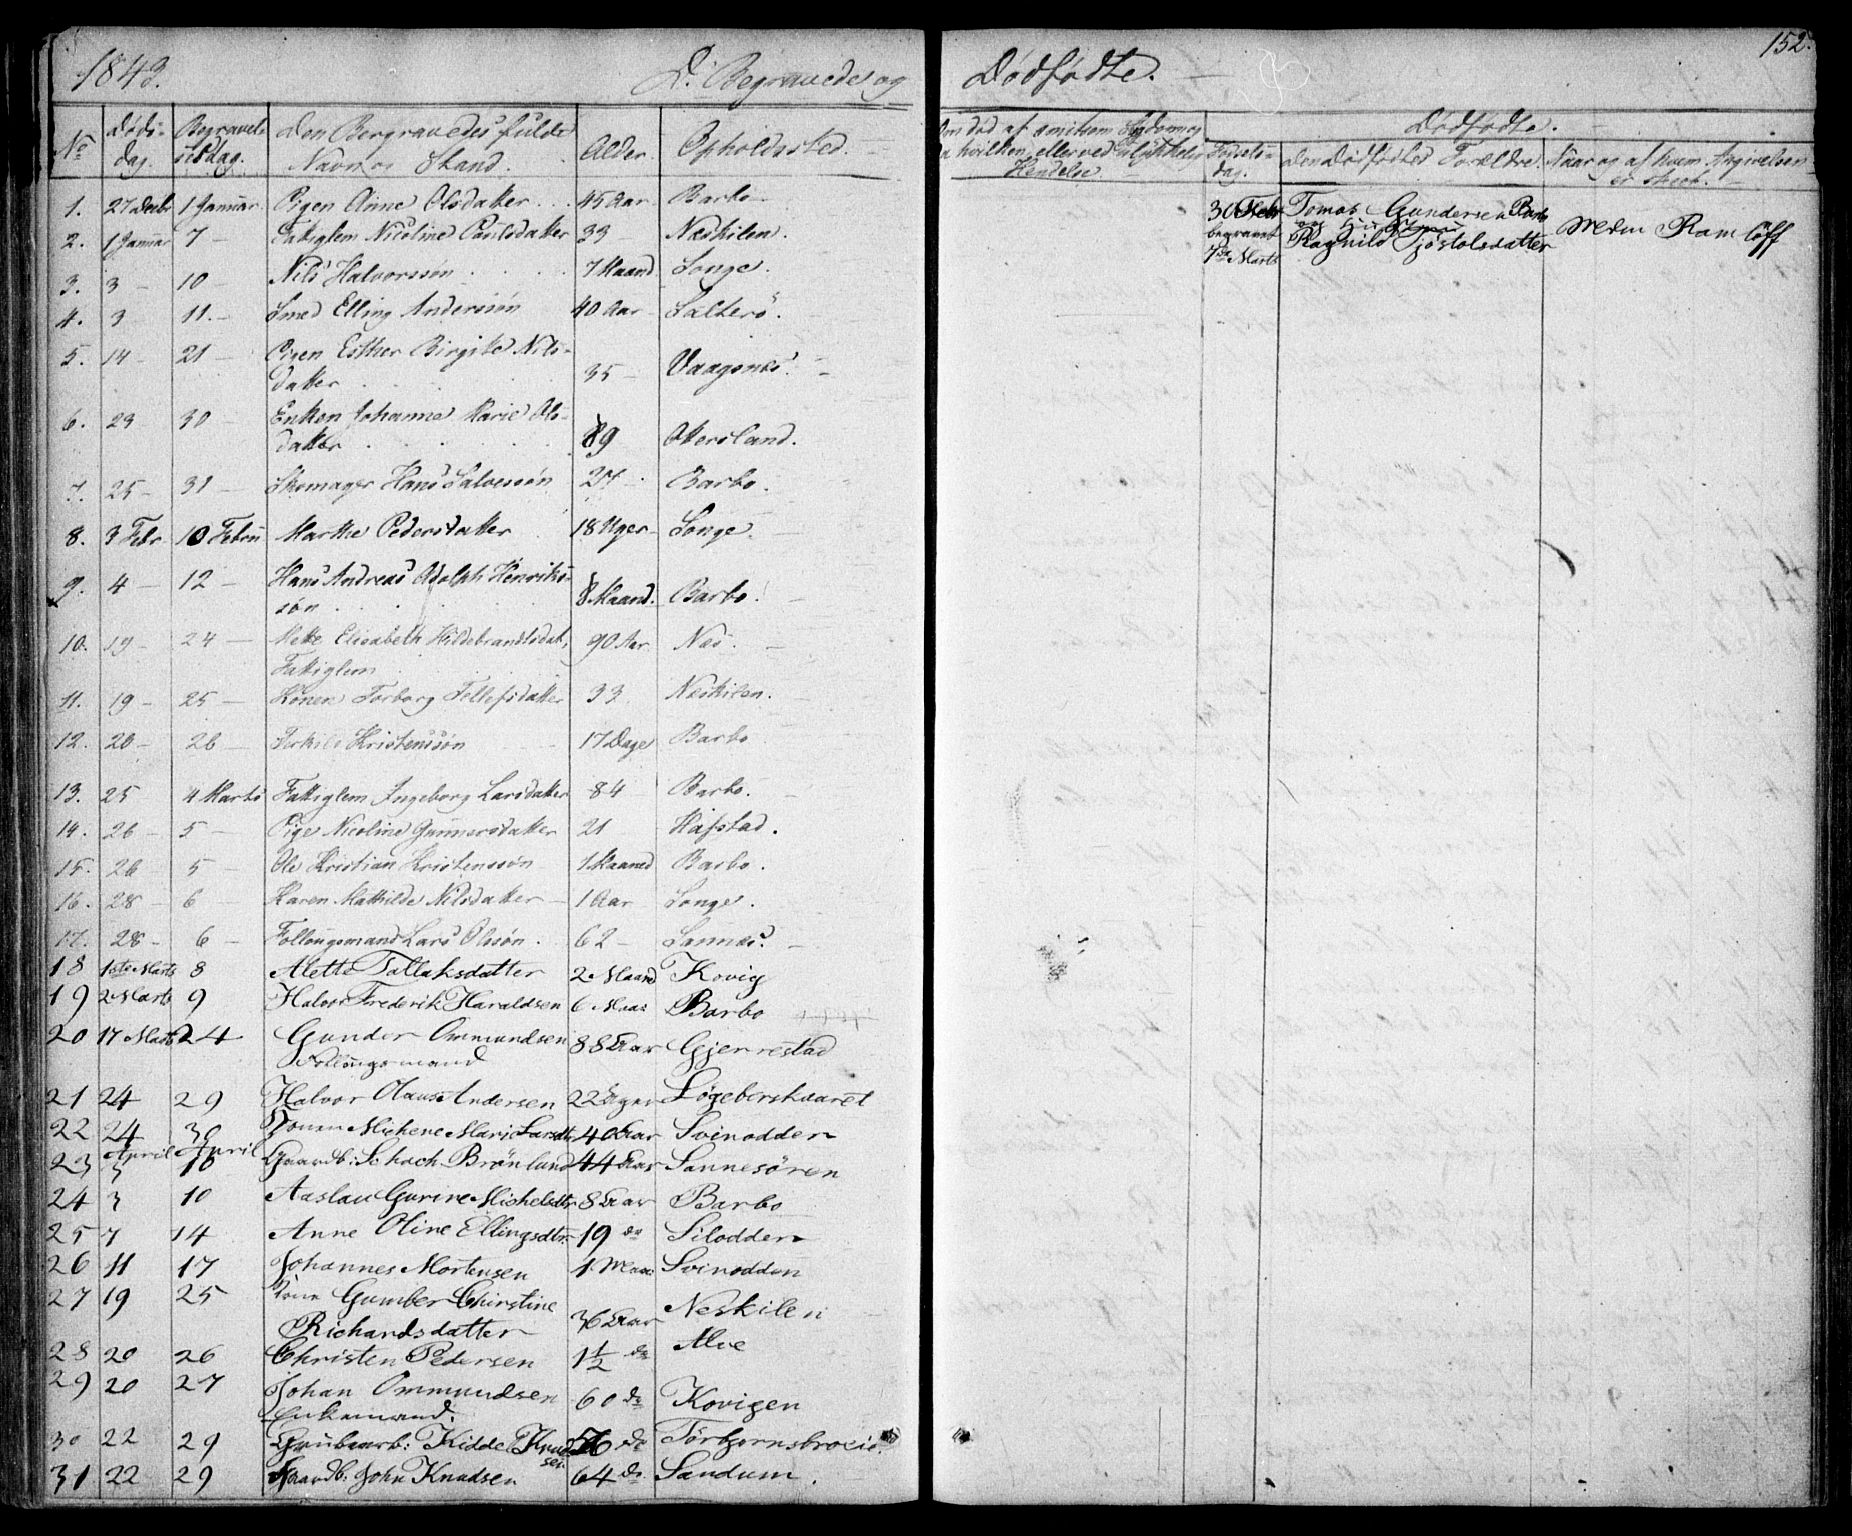 1843. D. Begravede og Dødfødte. 152.
No Døds-dag. Begravelsesdag. Den Bergravedes fulde Navn og Stand. Alder. Opholdssted.
Dødfødte.
Om død af smitsom Sygdom og hvilken, eller ved Ulykkelig Hendelse
Fødselsdag. Den Dødfødtes Forældre. Naar og af hvem Angivelsen er skeet.
1. 27 Decbr 1 Januar Pigen Anne Olsdatter 45 Aar Barbo
2. 1 Januar 7 Fattiglem Nicoline Paulsdatter 33 Neskilen.
3. 3 10 Nils Halvorssøn 7 Maand Songe.
4. 3 11 Smed Elling Anderssøn 40 Aar Salterø.
5. 14 21 Pigen Esther Birgitte Nils-
datter 35 Vaagsnes.
6. 23 30 Enken Johanne Marie Ols-
datter 89 Ottersland.
7. 25 31 Skomager Hans Salvessøn 27 Barbo.
8. 3 Febr 10 Febru Marthe Pedersdatter 18 Uger Songe.
9. 4 12 Hans Andreas Adolph Henriks-
søn 8 Maand. Barbo.
10. 19 24 Mette Elisabeth Hildebrandsdat,
Fattiglem 90 Aar Nes.
11. 19 25 Konen Torborg Tellefsdatter 33 Neskilen.
12. 20 26 Terkils Kristenssøn 17 Dage Barbo
13. 25 4 Marts Fattiglem Ingeborg Larsdatter 84 Barbo.
14. 26 5 Pige Nicoline Gunnersdatter 21 Hafstad.
15. 26 5 Ole Kristian Kristenssøn 1 Maaned Barbo.
16. 28 6 Karen Mathilde Nilsdatter 1 Aar Songe.
17. 28 6 Follougsmand Lars Olssøn. 62 Sannes.
18 1ste Marts 8 Alette Tallaksdatter 2 Maand Kovig
19 2 Marts 9 Halvor Frederik Haraldsen 6 Maan Barbo
20 17 Marts 24 Gunder Ommundsen 88 Aar Gjerrestad
Follougsmand
21 24 29 Halvor Olaus Andersen 22 Uger Løgeberskaaret
22 24 30 Konen Michene Marie Larsdtr 40 Aar Svinodden
23 April 3 April 10 Gaardb: Schach Brønlund 44 Aar Sannesøren
24 3 10 Aaslau Gurine Michelsdtr 8 Aar Barbo
25 7 14 Anne Oline Ellingsdtr 19 do Silodden
26 11 17 Johannes Mortensen 1 Maan Svinodden
27 19 25 Kone Gumber Chirstine
Richardsdatter 36 Aar Neskilen
28 20 26 Christen Pedersen 1 1/2 do Alve
29 20 27 Johan Ommundsen 60 do Kovigen
Enkemand.
30 22 29 Grubearb: Kidde Knud
sen 56 do Torbjørnsbroeie
31 22 29 Gaardb: John Knudsen 64 do Sandum.
30 Febr
begravet
7de Marts
Tomas Gundersen Barbo
og Hustrue
Ragnild Tjøstolsdatter
Meden Ramløff